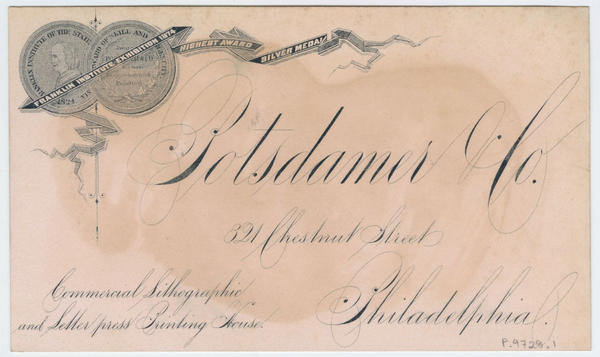 FRANKLIN INSTITUTE OF THE STATE
1824
AWARD OF SKILL AND
FRANKLIN INSTITUTE EXHIBITION 1874
HIGHEST AWARD
SILVER MEDAL
Potsdamer & Co.
321 Chestnut Street
Commercial Lithographic
and Letter press Printing House.
Philadelphia.
P.9728.1